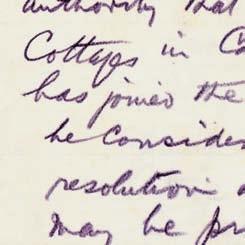 authority that
Cottages in
has joined the
he considers
resolution
may be pr